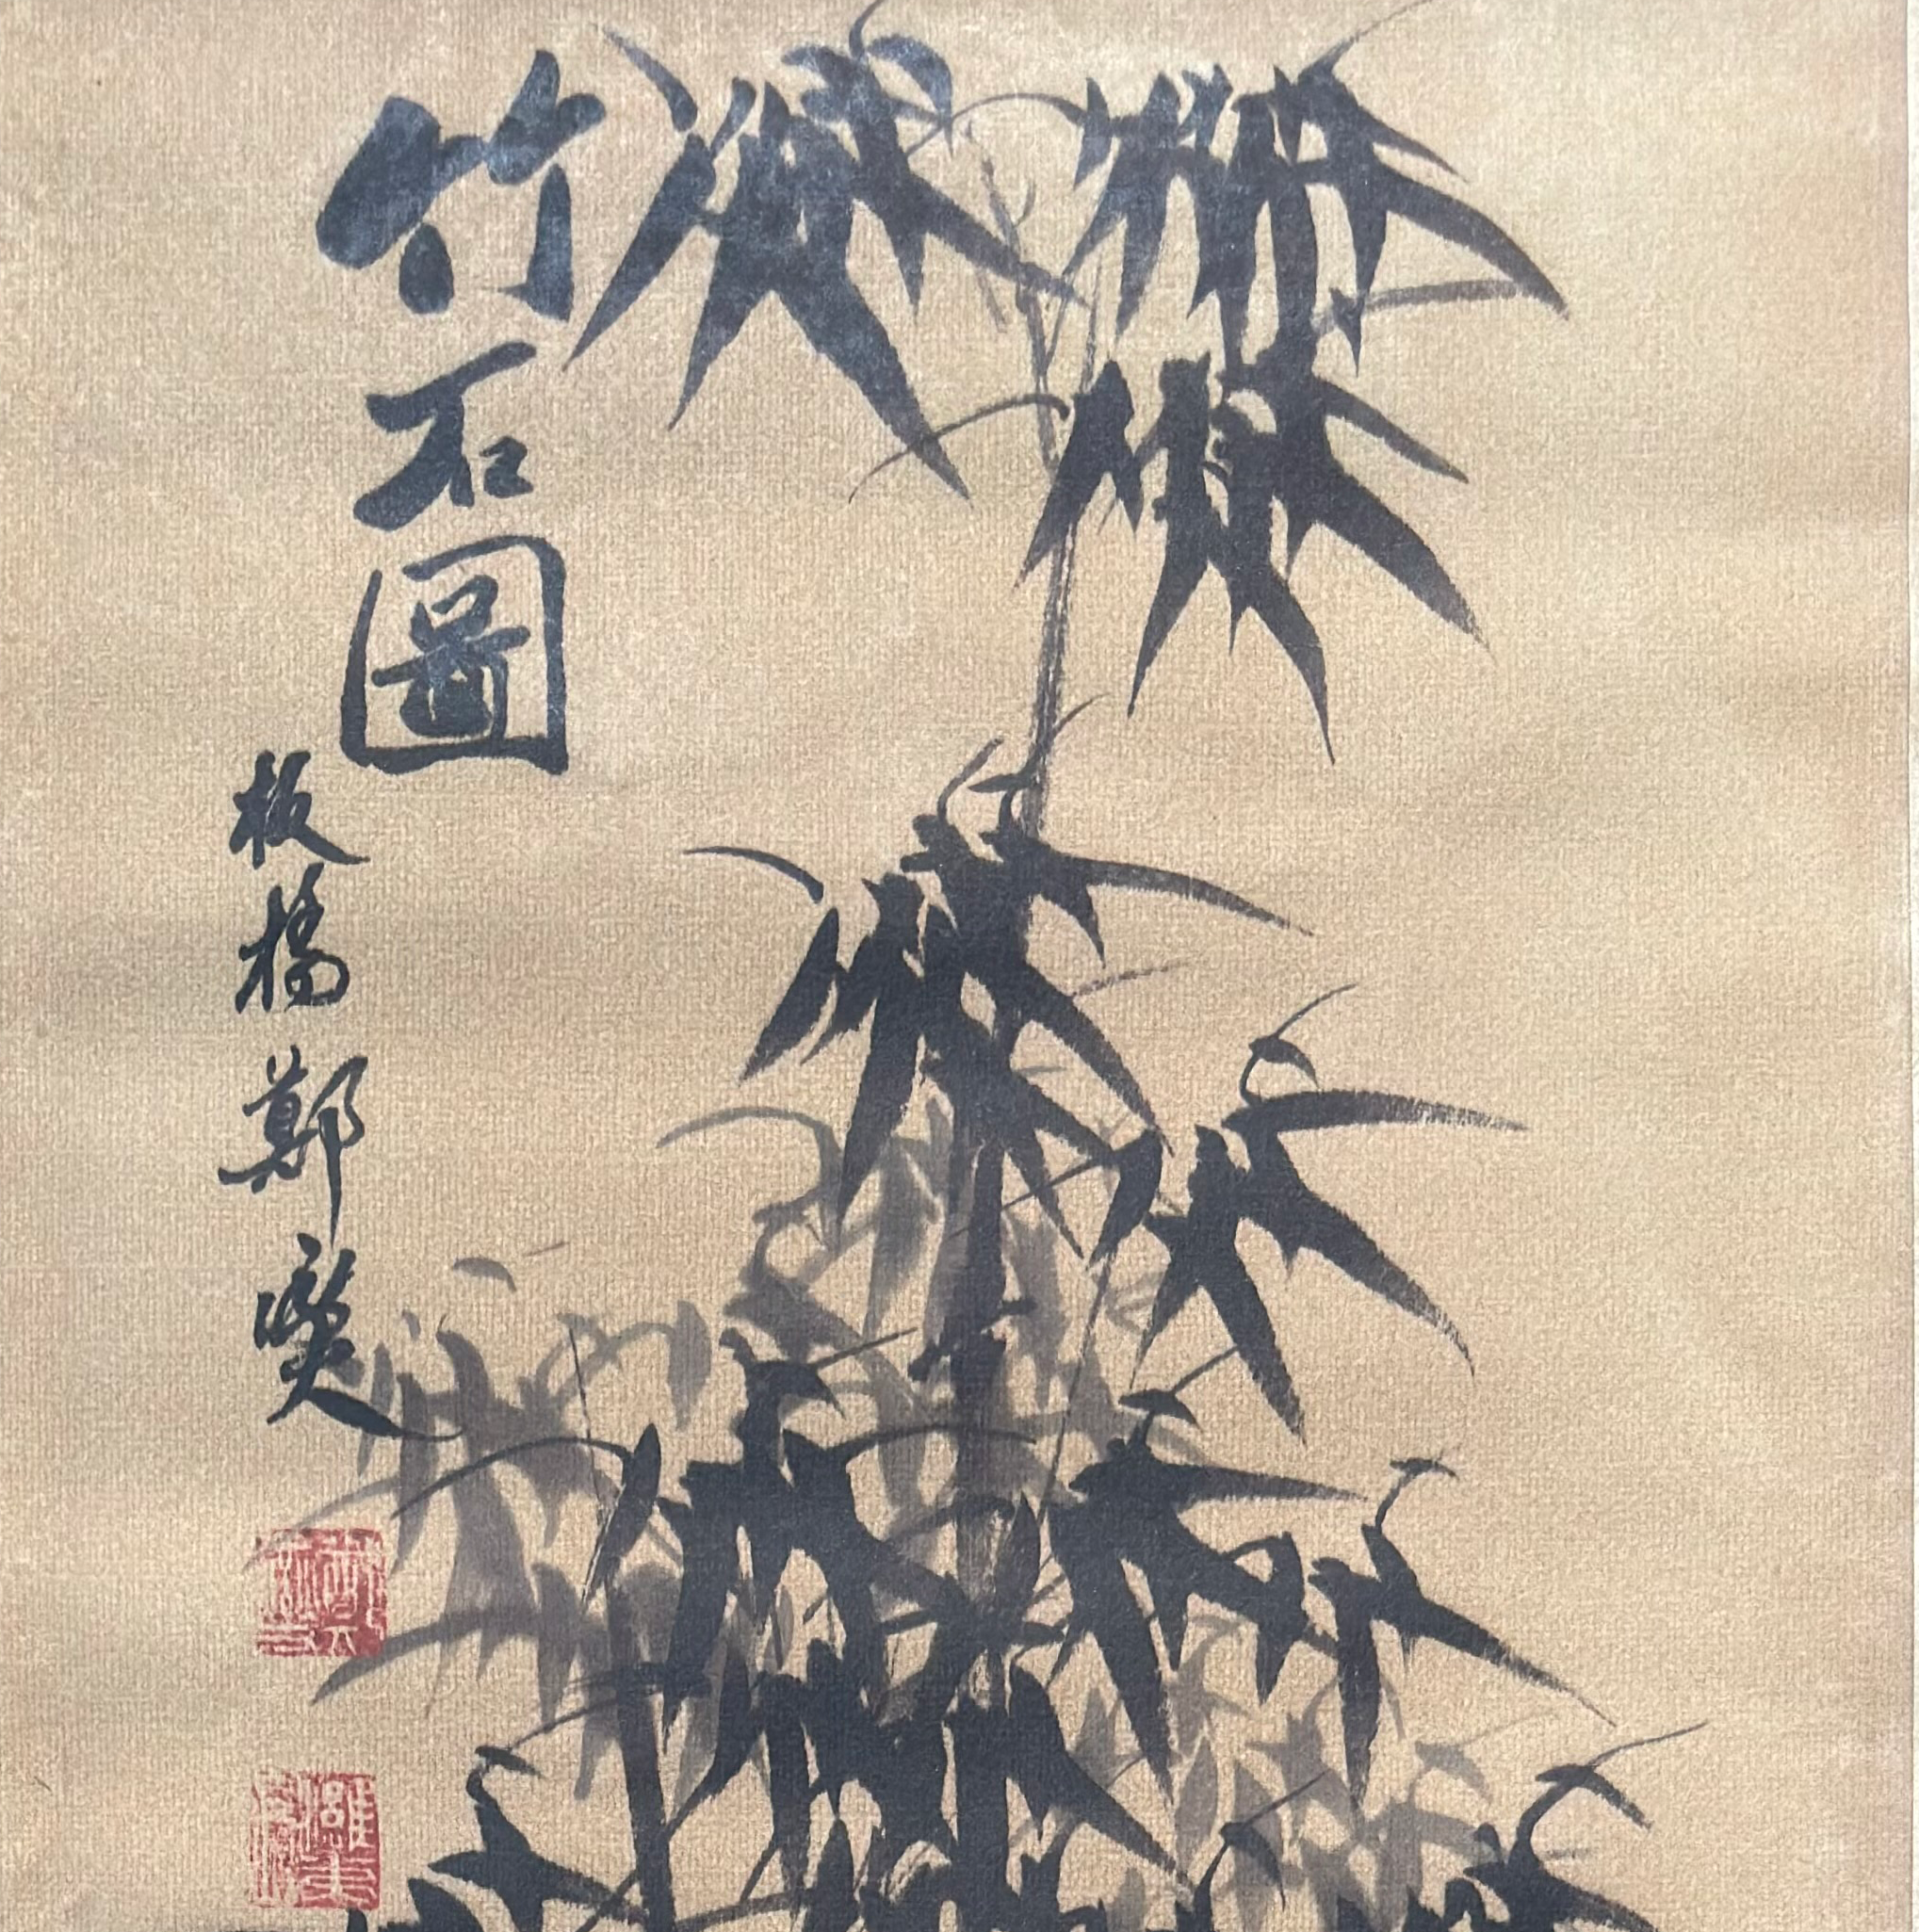 竹石圖
板橋鄭燮